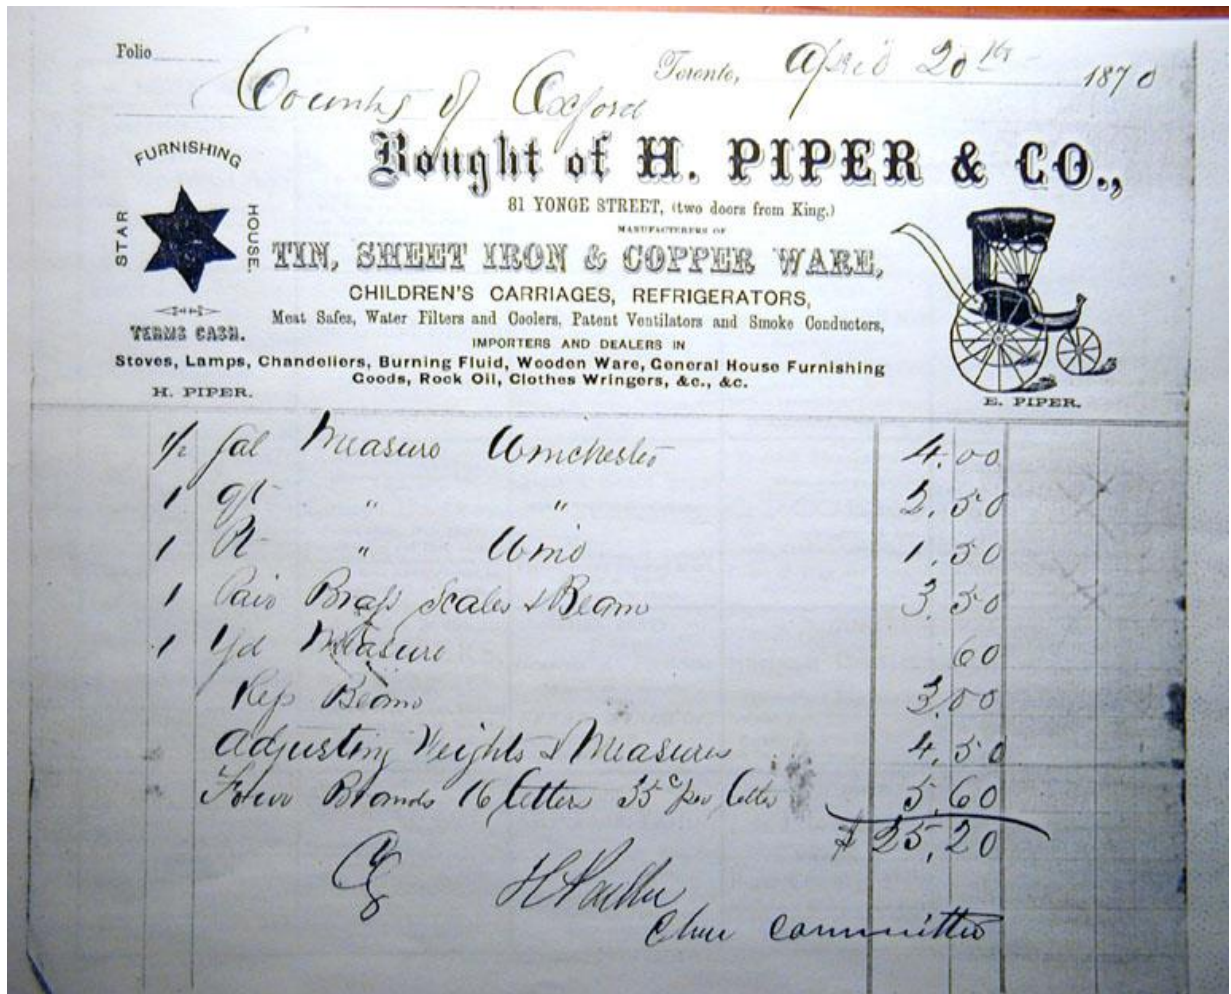 Folio
Toronto, April 20th 1870
County of Oxford
Bought of H. PIPER & CO.,
FURNISHING
STAR
HOUSE.
81 YONGE STREET, (two doors from King.)
MANUFACTURERS OF
TIN, SHEET IRON & COPPER WARE,
CHILDREN'S CARRIAGES, REFRIGERATORS,
Meat Safes, Water Filters and Coolers, Patent Ventilators and Smoke Conductors,
TERMS CASH.
IMPORTERS AND DEALERS IN
Stoves, Lamps, Chandeliers, Burning Fluid, Wooden Ware, General House Furnishing
Goods, Rock Oil, Clothes Wringers, &c., &c.
H. PIPER.
E. PIPER.
1/2 Gal Measure Winchester 4.00
1 qt " " 2.50
1 Pt " Wine 1.50
1 Pair Brass Scales & Beam 3.50
1 Yd Measure 60
Rep Beam 3.00
Adjusting Weights & Measures 4.50
Brands 16 letters 35c per letter 5.60
$25.20
Committee